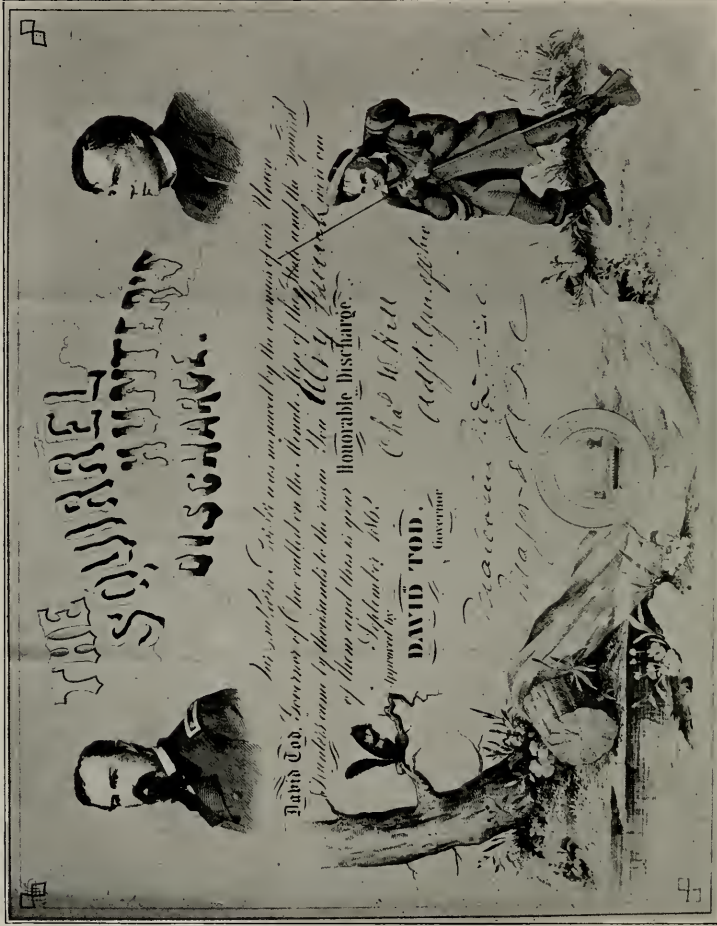 THE
SQUIRREL
HUNTER'S
DISCHARGE.
Our Southern border was menaced by the enemies of our Union
David Tod, Governor of Ohio called on the Minute Men of the State and the Squirrel
Hunters came by thousands to the rescue You were one
of them and this is your Honorable Discharge.
September 1862 Chas W. Hill
Approved by Adjt. Gen. of Ohio
DAVID TOD.
Governor
Malcolm
Major &